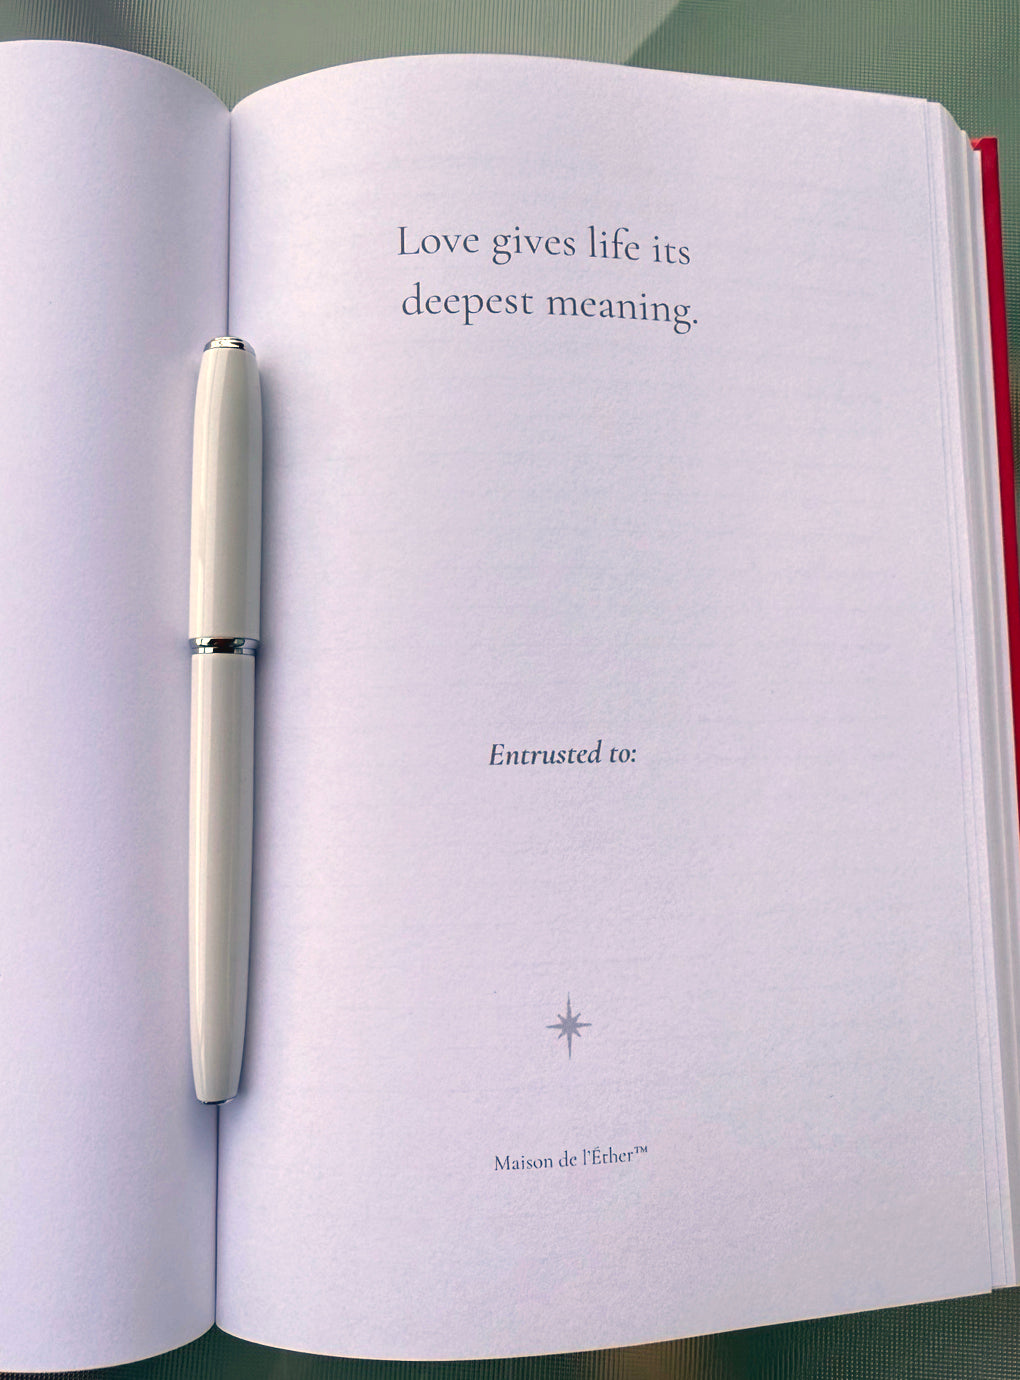 Love gives life its
deepest meaning.
Entrusted to:
Maison de l’Éther™